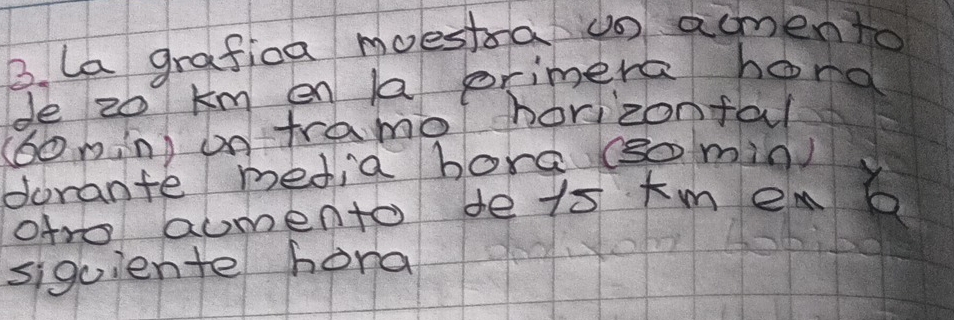 3. La grafica muestra un aumento
de 20 km en la primera hora
(60 min) un tramo horizontal
durante media hora (30 min) y
otro aumento de 15 km en la
siguiente hora